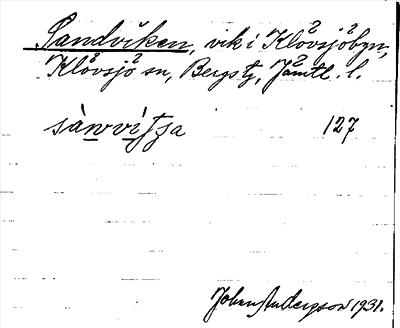 Sandviken, vik i Klövsjöbyn,
Klövsjö sn, Bergs tg, Jämtl. l.
sànvìtsa 127
Johan Anderson 1931.